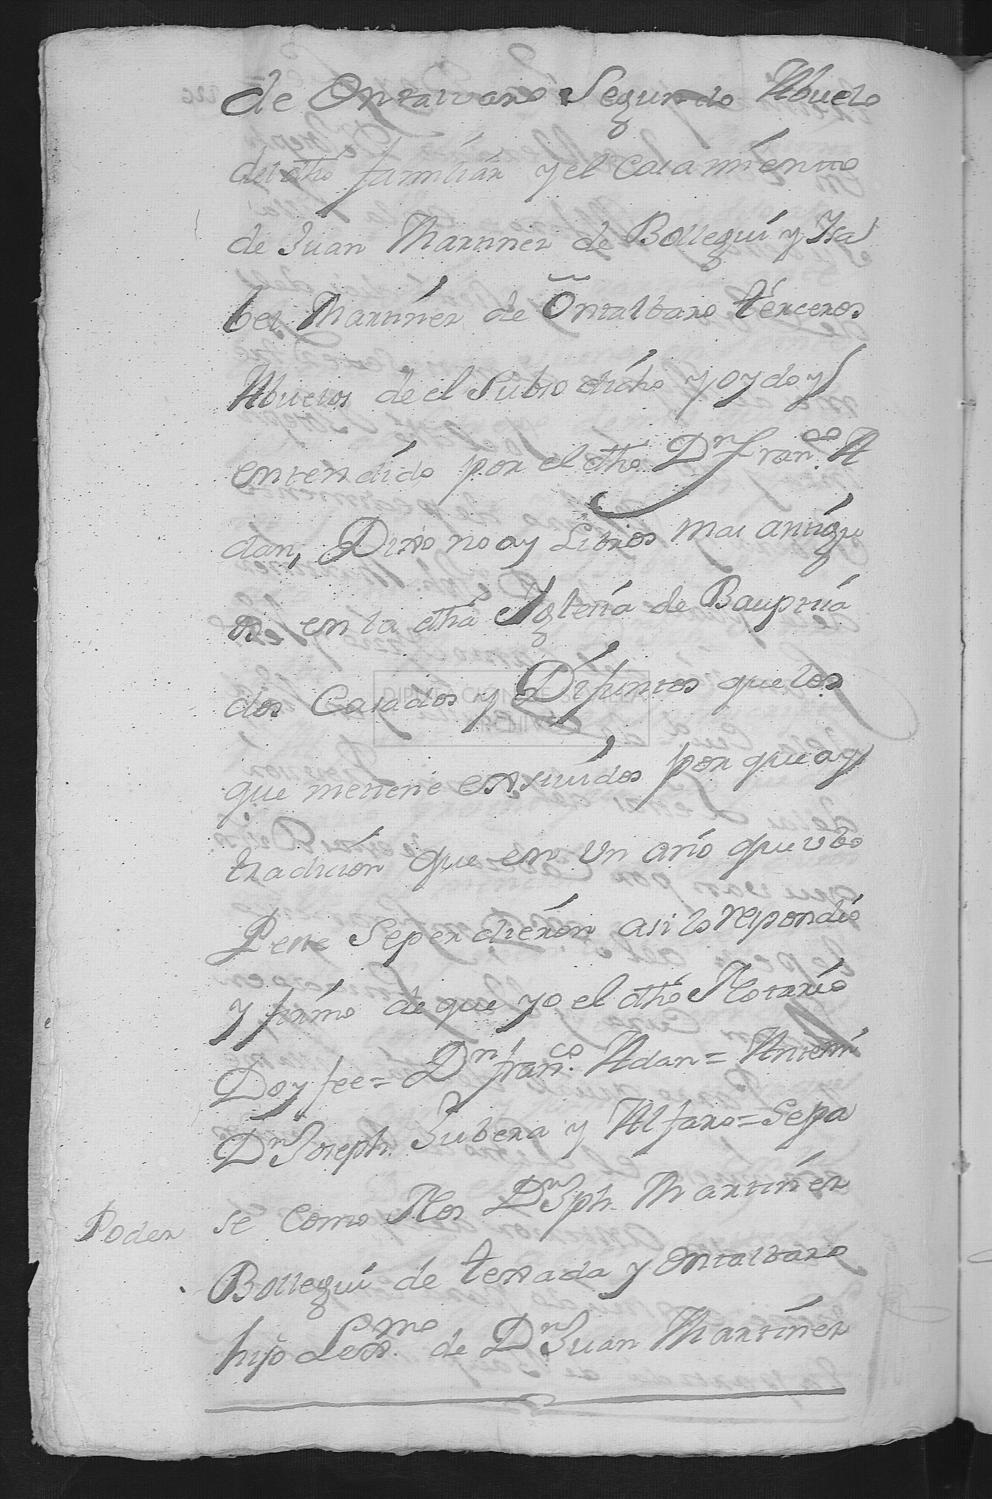 de Ontalvaro Segundo Abuelo
del dho familiar y el casamiento
de Juan Martinez de Bollegui y Isa
bel Martinez de Ontalbaro terceros
Abuelos de el Subso dicho y oydo y
entendido por el dho Dn Franco A
dan, Dixo no ay Libros mas antiguo
os en la dha Iglesia de Bauptiza
dos Casados y Difuntos que los
que metiene exsiuidos por que ay
tradicion que en un año que vbo
Peste Seperdieron asi lo respondio
y firmo de que yo el dho Notario
Doy fee = Dn franco Adan = Antemi
Dn Joseph Subera y Alfaro = Sepa
Poder se como Nos Dn Jph Martinez
Bollegui de texada y Ontalbaro
hijo Lexmo de Dn Juan Martinez